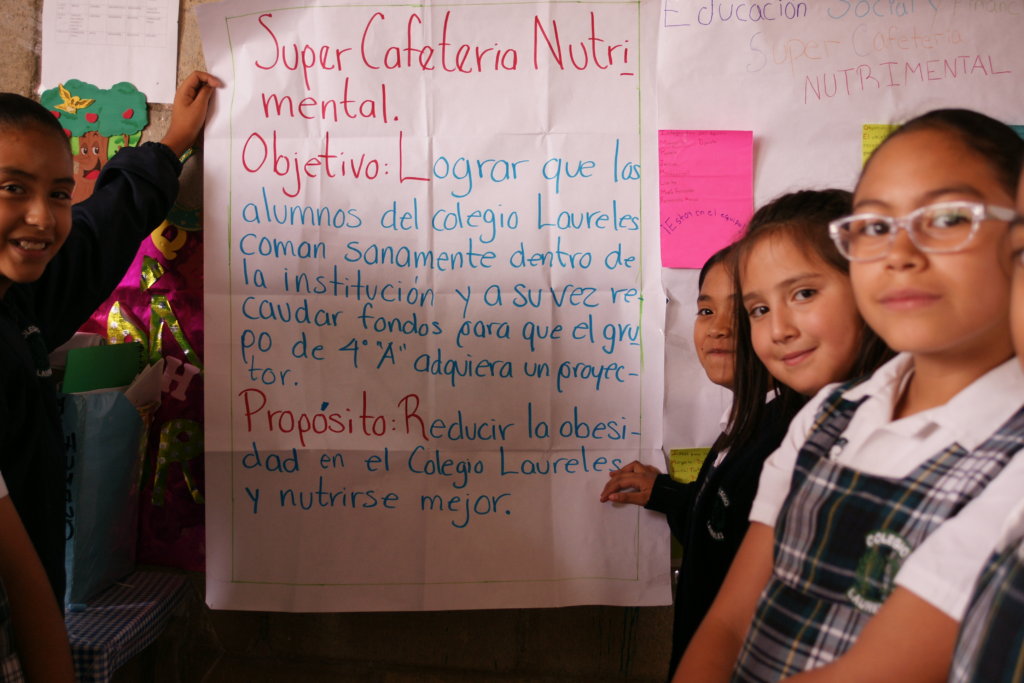 Super Cafeteria Nutri
mental.
Objetivo: Lograr que los
alumnos del colegio Laureles
coman sanamente dentro de
la institución y a su vez re
caudar fondos para que el gru
po de 4° "A" adquiera un proyec-
tor.
Propósito: Reducir la obesi-
dad en el Colegio Laureles
y nutrirse mejor.
Educacion Social y Financ
Super Cafeteria
NUTRIMENTAL
¡Estas en el equipo
COLEGIO